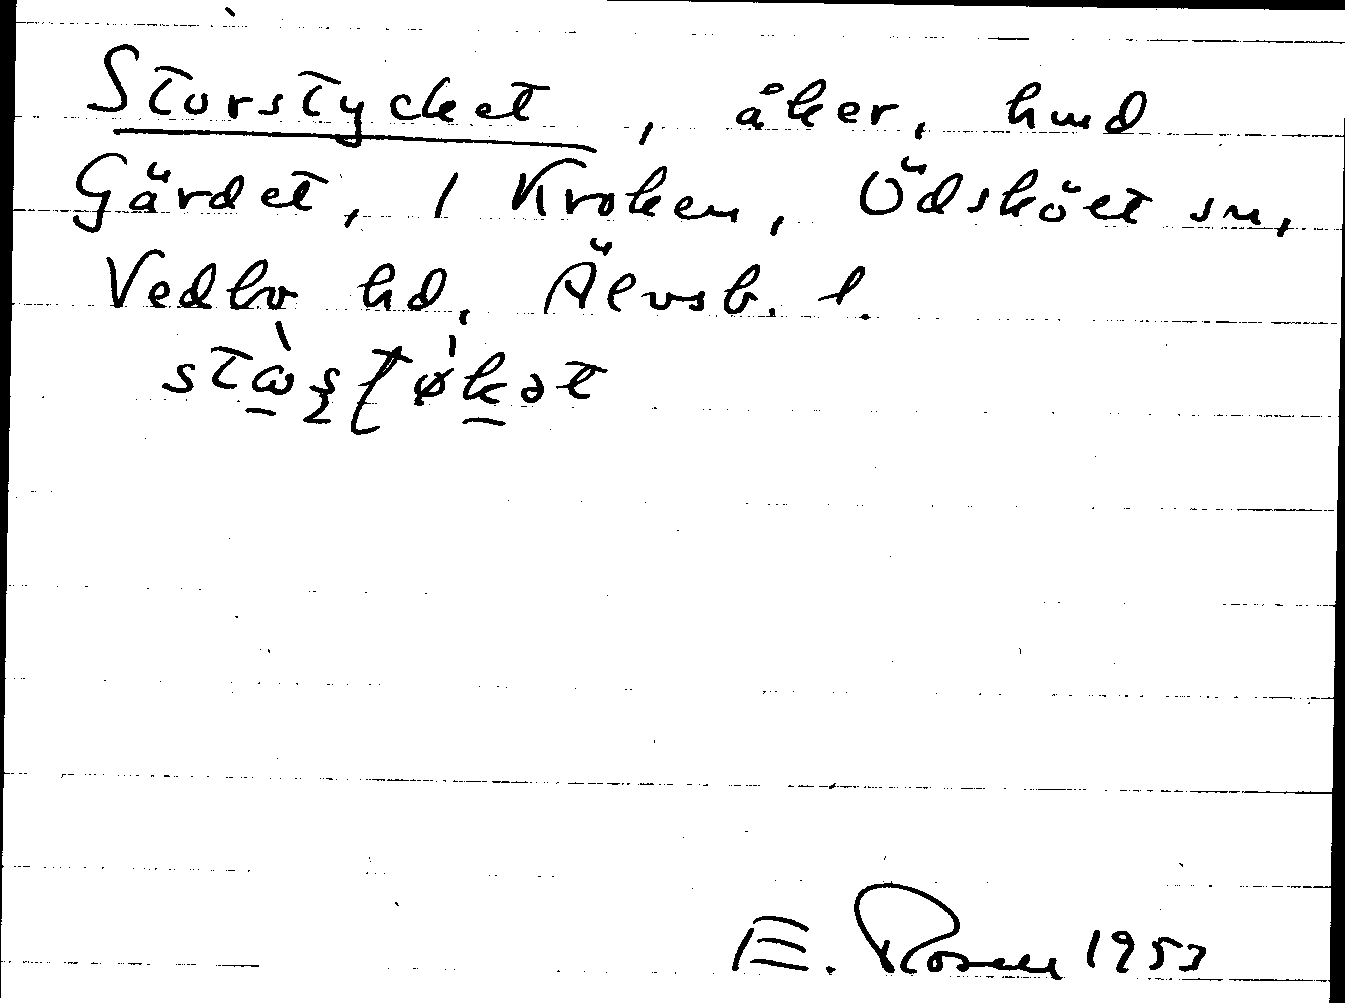 Storstycket, åker, hmd
Gärdet, 1 Kroken, Ödsköet sn,
Vedbo hd, Älvsb. l.
E. Rosen 1953